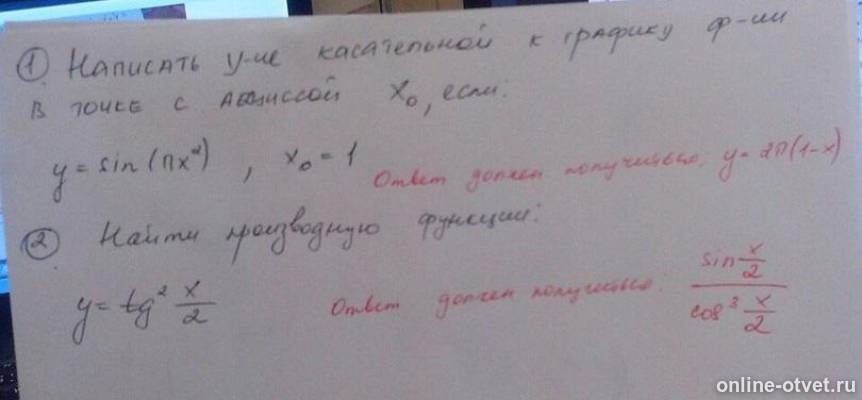 ① Написать ур-ие касательной к графику ф-ии
в точке с абсциссой x₀, если:
y = sin(πx²), x₀ = 1 Ответ должен получиться: y = 2π(1-x)
② Найти производную функции:
y = tg² x/2 Ответ должен получиться: sin x/2 / cos³ x/2
online-otvet.ru